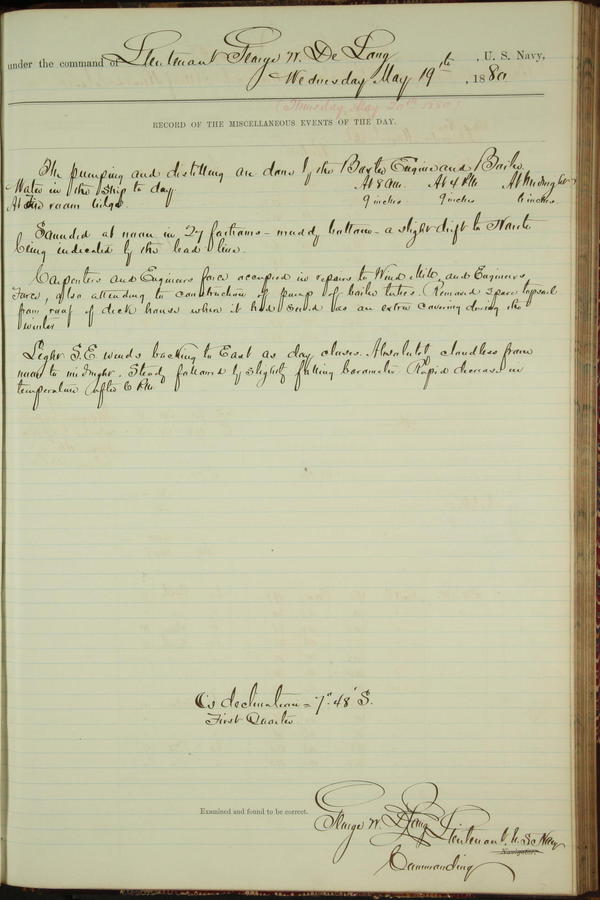 under the command of Lieutenant George W. De Long , U. S. Navy,
Wednesday May 19th , 1880
(Thursday, May 20th 1880)
RECORD OF THE MISCELLANEOUS EVENTS OF THE DAY.
The pumping and distilling are done by the Baxter Engine and Boiler.
Water in the ship to day At 8 AM. At 4 PM At Midnight
At fire room bilge. 9 inches 9 inches 6 inches.
Sounded at noon in 27 fathoms - muddy bottom - a slight drift to North
being indicated by the lead line.
Carpenters and Engineers force occupied in repairs to Wind Mill, and Engineers
Force, also attending to construction of pump of boiler tubes. Removed spare topsail
from roof of deck house where it had served as an extra covering during the
winter
Light S.E winds backing to East as day closes. Absolutely cloudless from
noon to midnight. Steady followed by slightly falling barometer. Rapid decrease in
temperature after 6 PM
☾'s declination = 7° 48' S.
First Quarter
Examined and found to be correct.
George W. De Long Lieutenant U. S. Navy
Navigator.
Commanding